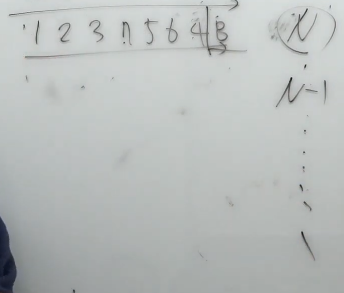 1 2 3 n 5 6 4 B
N
N-1